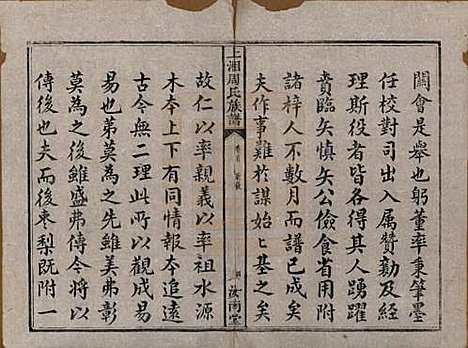 闔會是舉也躬董率秉筆墨
任校對司出入厲贊勷及經
理斯役者各得其人踴躍
賁臨矢慎矢公儉食省用附
諸梓人不數月而譜已成矣
夫作事難於謀始〻基之矣
上湘周氏族譜
卷首
汝南堂
故仁以率親義以率祖水源
木本上下有同情報本追遠
古今無二理此所以觀成易
易也第莫為之先雖美弗彰
莫為之後雖盛弗傳今將廣
傳後也夫而後棗梨既附一